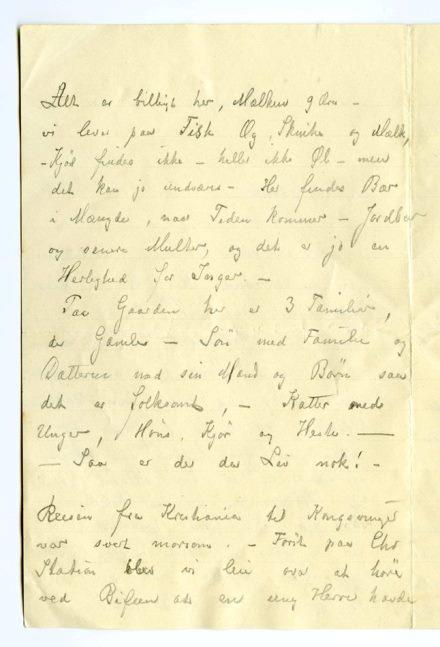 Alt er billigt her, Mælken 9 Øre –
vi lever paa Fisk Æg, Skinke og Mælk,
– Kjød findes ikke – heller ikke Øl – men
det kan jo undværes – Her findes Bær
i Mængde, naar Tiden kommer – Jordbær
og senere Multer, og det er jo en
Herlighed for
Paa Gaarden her er 3 Familier,
de Gamle – Søn med Familie og
Datteren med sin Mand og Børn saa
det er folksomt, – Katter med
Unger, Høns, Kjør og Heste. –
– Saa er der da Liv nok! –
Reisen fra Kristiania til Kongsvinger
var svert morsom. – Først paa
Station blev vi lei over at høre
ved Bufeen at en ung Herre havde